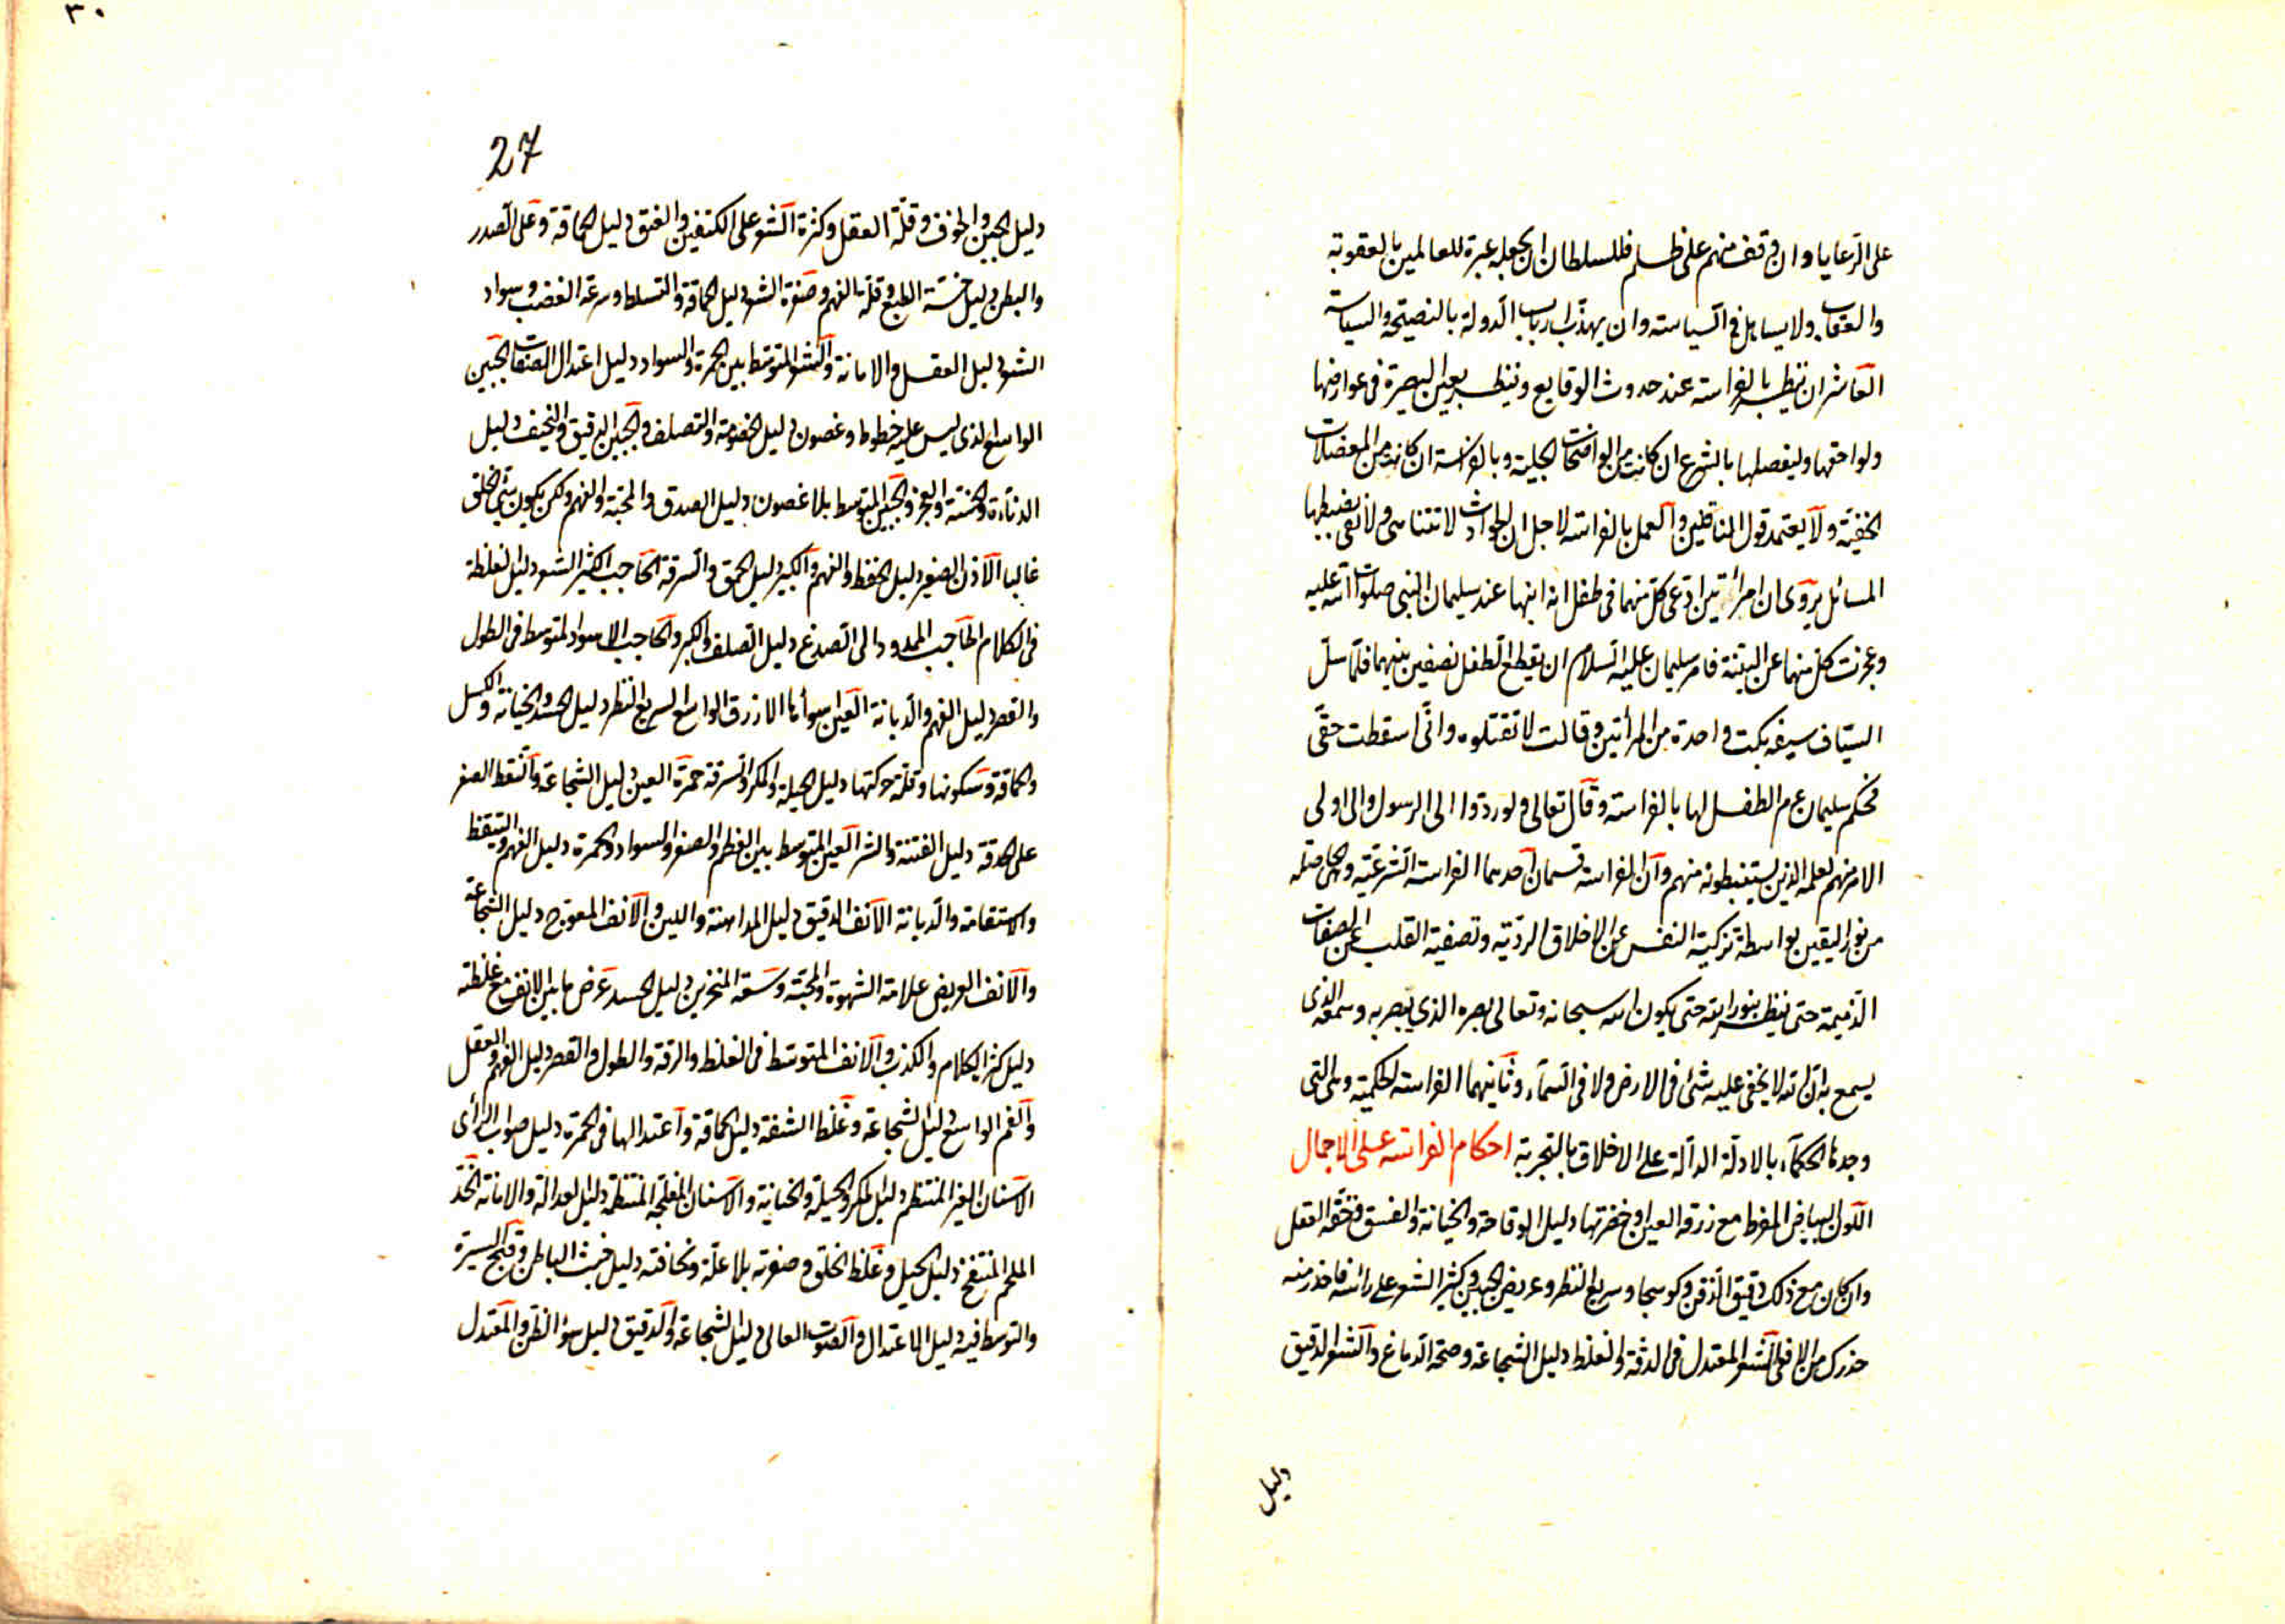 على الرعايا وان وقف منهم على ظلم فللسلطان ان يجعله عبرة للعالمين بالعقوبة
والعقاب ولا يساهل في السياسة وان يهذب ارباب الدولة بالنصيحة والسياسة
العاشر ان ينظر بالفراسة عند حدوث الوقايع وينظر بعين البصيرة في عوارضها
ولواحقها وليفصلها بالشرع ان كانت من الواضحات الجلية وبالفراسة ان كانت من المعضلات
الخفية ولا يعتمد قول الناقلين والعمل بالفراسة لاجل ان الحوادث لا تتناهى ولا تفى بضبطها
المسائل يروى ان امرأتين ادعى كل منهما في طفل انه ابنها عند سليمان النبي صلوات الله عليه
وعجزت كل منهما عن البينة فامر سليمان عليه السلام ان يقطع الطفل نصفين بينهما فلما سل
السياف سيفه بكت واحدة من المرأتين وقالت لا تقتلوه وانى اسقطت حقى
فحكم سليمان عم الطفل لها بالفراسة وقال تعالى ولو ردوا الى الرسول والى اولى
الامر منهم لعلمه الذين يستنبطونه منهم وان الفراسة قسمان احدهما الفراسة الشرعية وهي حاصلة
من نور اليقين بواسطة تزكية النفس عن الاخلاق الردية وتصفية القلب عن الصفات
الذميمة حتى ينظر بنور الله حتى يكون الله سبحانه وتعالى بصره الذي يبصر به وسمعه الذى
يسمع به ان الله لا يخفى عليه شئ في الارض ولا في السماء وثانيهما الفراسة الحكمية وهى التى
وجدها الحكماء بالادلة الدالة على الاخلاق بالتجربة احكام الفراسة على الاجمال
اللون البياض المفرط مع زرقة العين وخضرتها دليل الوقاحة والخيانة والفسق وخفة العقل
وان كان مع ذلك دقيق الذقن وكوسجا وسريع النظر وعريض الجبين وكثير الشعر على رائسه فاحذر منه
حذرك من الافعى الشعر المعتدل في الدقة والغلظ دليل الشجاعة وصحة الدماغ والشعر الدقيق
دليل
٣٠
27
دليل الجبن والخوف وقلة العقل وكثرة الشعر على الكتفين والعنق دليل الحماقة وعلى الصدر
والبطن دليل خسة الطبع وقلة الفهم وصفرة الشعر دليل الحماقة والتسلط وسرعة الغضب وسواد
الشعر دليل العقل والامانة والشعر المتوسط بين الحمرة والسواد دليل اعتدال الصفات الجبين
الواسع الذي ليس عليه خطوط وغصون دليل الخصومة والتصلف والجبين الدقيق والنحيف دليل
الدناءة والخسة والعجز والجبين المتوسط بلا غصون دليل الصدق والمحبة والفهم ولكن يكون سئ الخلق
غالبا الاذن الصغير دليل الحفظ والفهم والكبير دليل الحمق والسرقة الحاجب الكثير الشعر دليل الغلظة
في الكلام الحاجب الممدود الى الصدغ دليل الصلف والكبر والحاجب الاسواد المتوسط في الطول
والقصر دليل الفهم والديانة العين اسوأها الازرق الواسع السريع النظر دليل الحسد والخيانة والكسل
والحماقة وسكونها وقلة حركتها دليل الحيلة والمكر والسرقة حمرة العين دليل الشجاعة والنقط الصفر
على الحدقة دليل الفتنة والشر العين المتوسط بين العظم والصغر والسواد والحمرة دليل الفهم والتيقظ
والاستقامة والديانة الانف الدقيق دليل المداهنة واللين والانف المعوج دليل الشجاعة
والانف العريض علامة الشهوة والمحبة وسعة المنخرين دليل الحسد عرض ما بين الانف مع غلظته
دليل كثر الكلام والكذب والانف المتوسط في الغلظ والرقة والطول والقصر دليل الفهم والعقل
والفم الواسع دليل الشجاعة وغلظ الشفة دليل الحماقة واعتدالها في الحمرة دليل صواب الرأى
الاسنان الغير المنتظم دليل المكر والحيلة والخيانة والاسنان المفلجة المنتظمة دليل العدالة والامانة الخد
الملحم المنتفخ دليل الجهل وغلظ الخلق وصفرته بلا علة ونحافته دليل خبث الباطن وقبح السيرة
والتوسط فيه دليل الاعتدال والصوت العالى دليل الشجاعة والدقيق دليل سؤ الظن والمعتدل